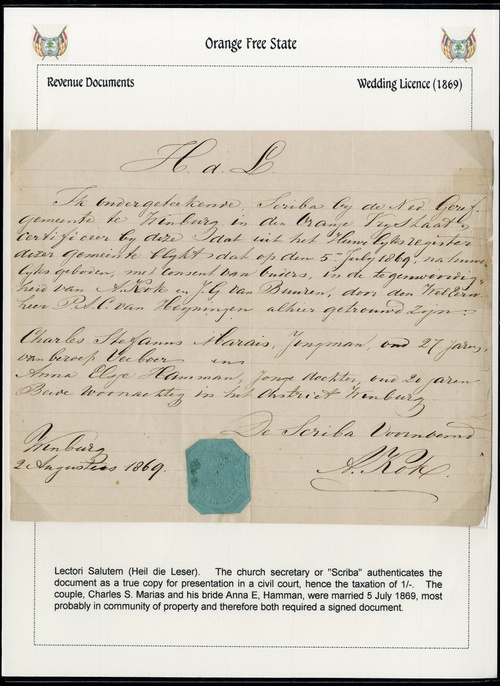 Orange Free State
Revenue Documents
Wedding Licence (1869)
H. d. L.
Ik ondergeteekende, Scriba by de Ned Geref.
gemeente te Winburg in den Oranje Vry Staat,
certificeer by deze dat uit het Huwlyksregister
dezer gemeente blykt dat op den 5 July 1869, na huwe-
lyksgeboden, met consent van ouders, in de tegenwoordig-
heid van A. Kok en J. G. van Buuren, door den WelEerw
heer P. S. C. van Heyningen alhier getrouwd zyn
Charles Stefanus Marais, Jongman, oud 27 jaren
van beroep Veeboer en
Anna Elsje Hamman, Jonge dochter, oud 20 jaren
Beide woonachtig in het district Winburg
De Scriba Voornoemd
Winburg
2 Augustus 1869.
A. Kok.
Lectori Salutem (Heil die Leser). The church secretary or "Scriba" authenticates the
document as a true copy for presentation in a civil court, hence the taxation of 1/-. The
couple, Charles S. Marias and his bride Anna E, Hamman, were married 5 July 1869, most
probably in community of property and therefore both required a signed document.